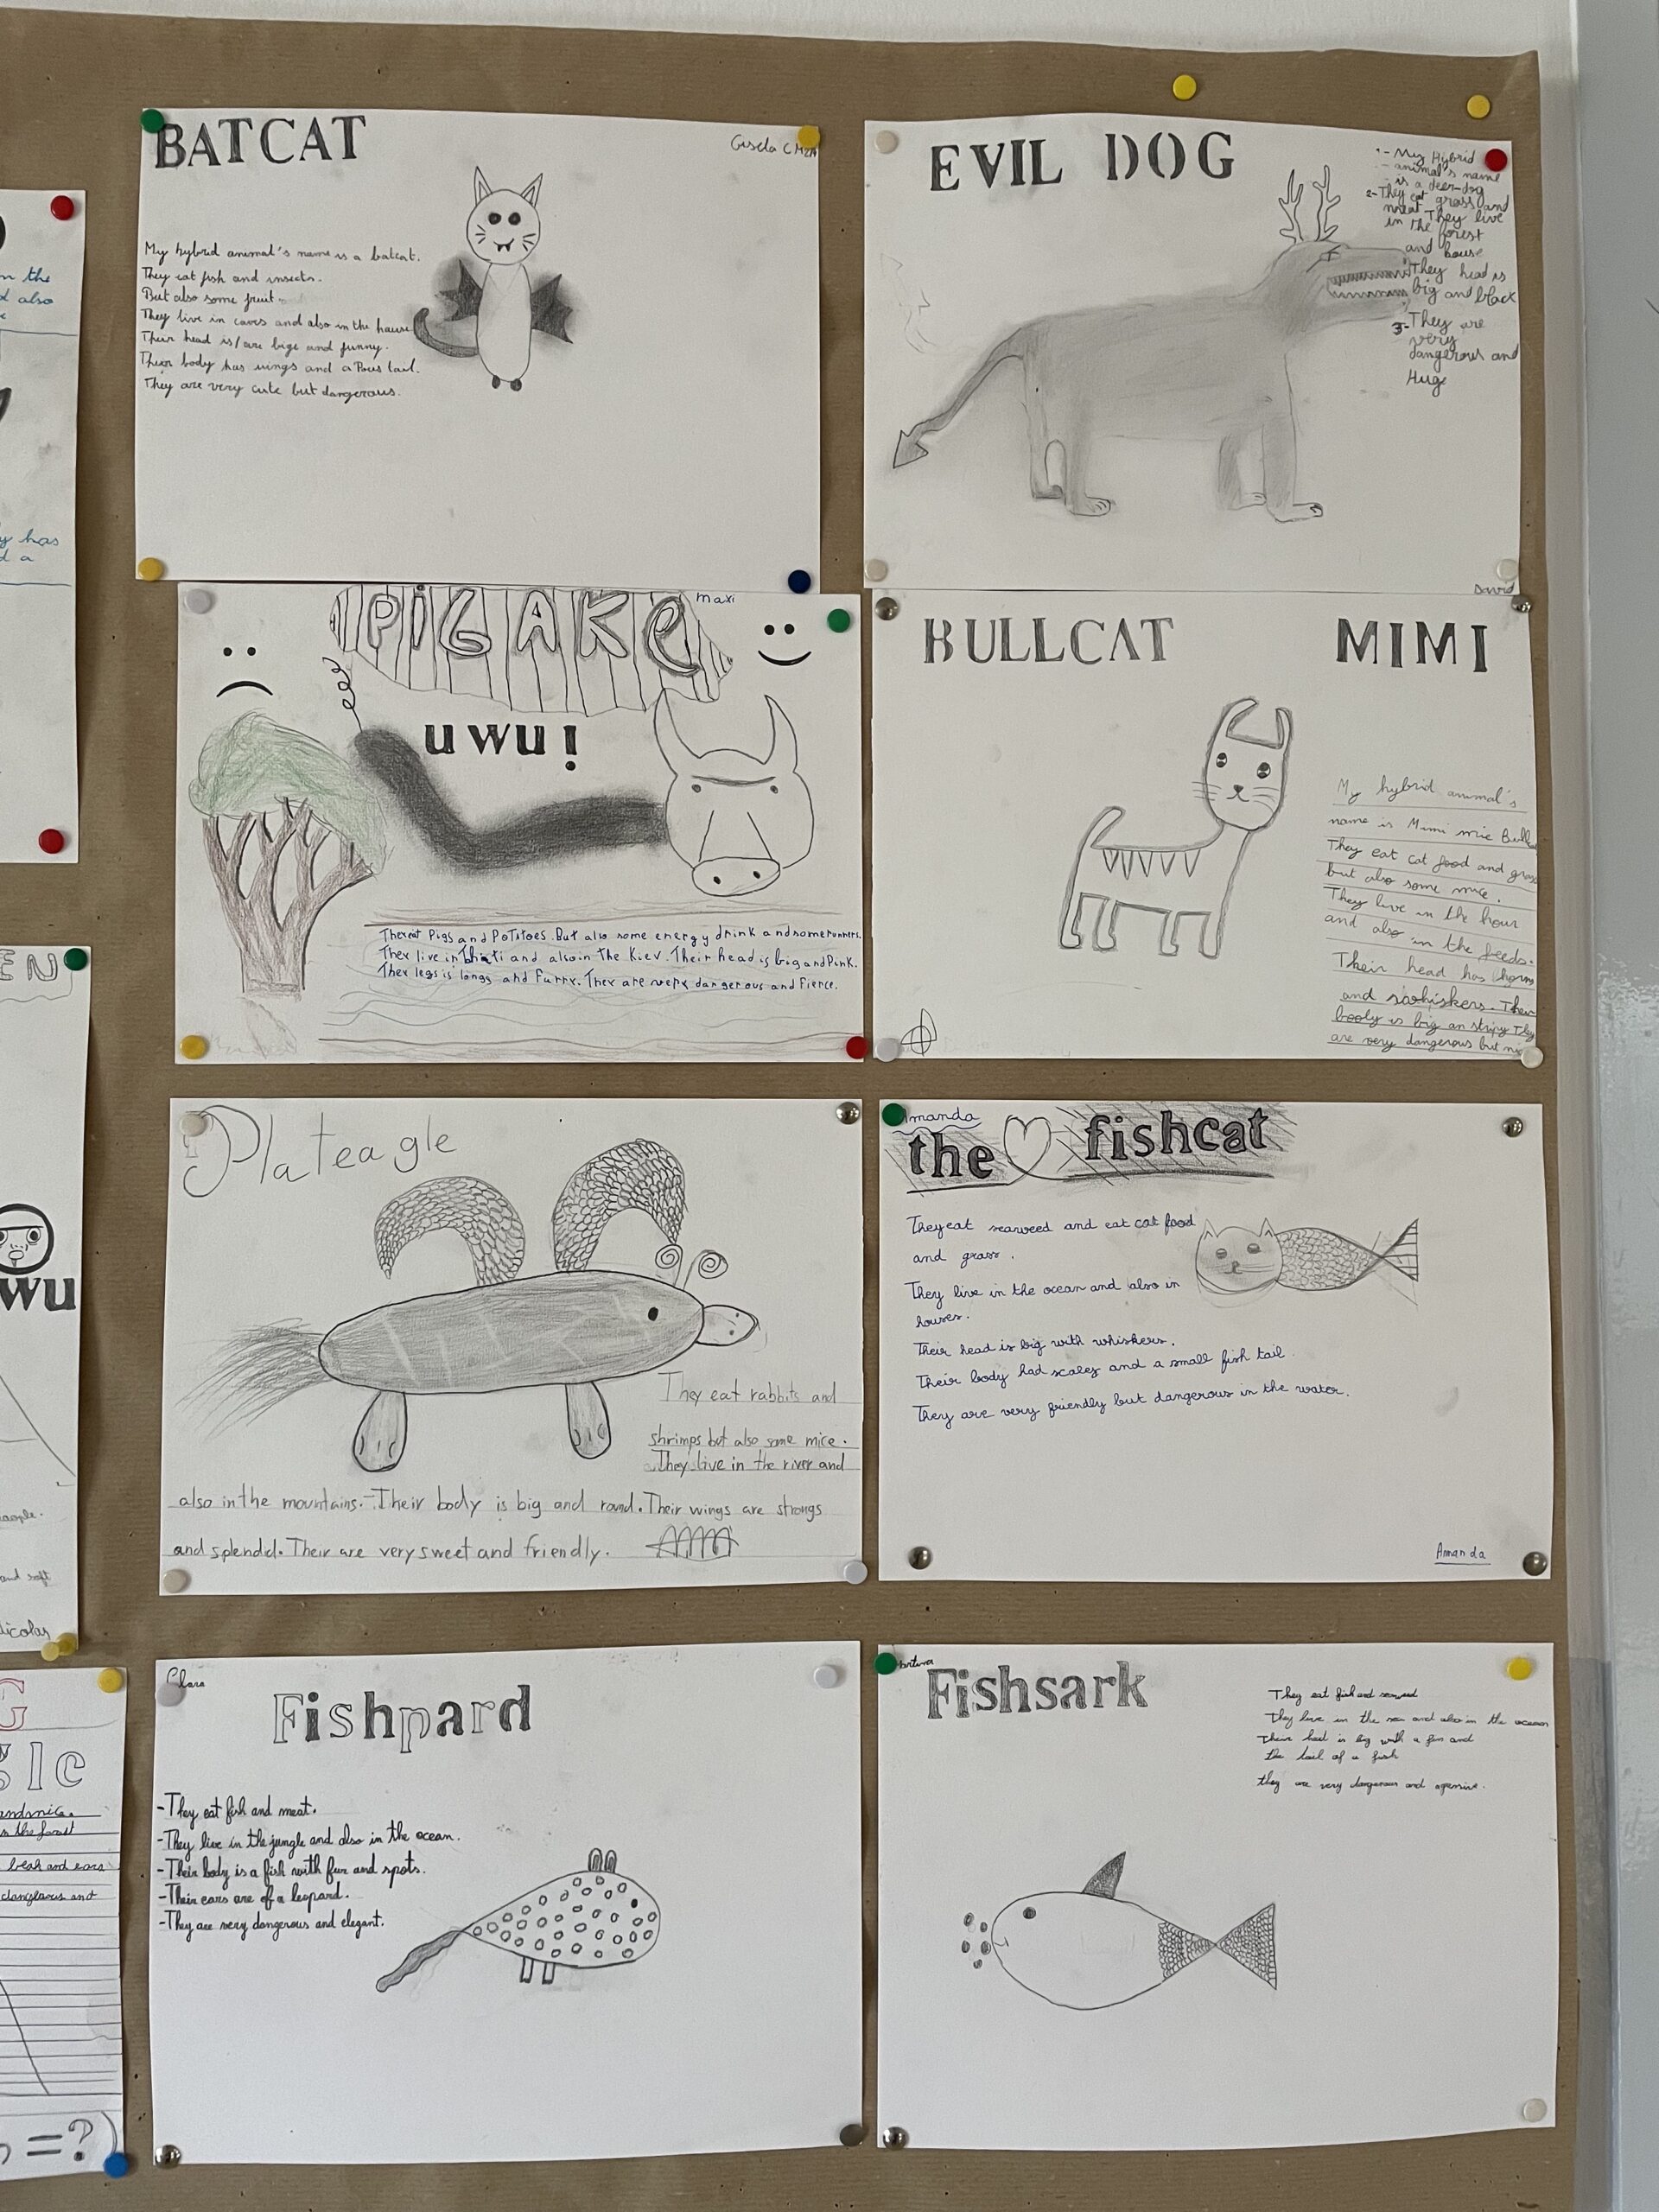 BATCAT
Gisela
My hybrid animal's name is a batcat.
They eat fish and insects.
But also some fruit.
They live in caves and also in the hause
Their head is/are bige and funny.
Their body has wings and a tail.
They are very cute but dangerous.
EVIL DOG
1- My Hybrid
animal's name
is a deer-dog
2- They eat grass and
meat. They live
in the forest
and house
They head is
big and black
3- They are
very
dangerous and
Huge
David
PiGAKe
maxi
uwu!
Thereat Pigs and PoTiToes. But also some energy drink and some runners.
They live in and also in the Kiev. Their head is big and Pink.
Their legs is longs and Furry. They are very dangerous and Fierce.
BULLCAT MIMI
My hybrid animal's
name is Mimi
They eat cat food and grass
but also some mice.
They live in the hour
and also in the feeds.
Their head has horns
and whiskers. Their
body is big an stripy They
are very dangerous but
Plateagle
They eat rabbits and
shrimps but also some mice.
They live in the river and
also in the mountains. Their body is big and round. Their wings are strongs
and splendid. Their are very sweet and friendly.
Amanda
the fishcat
They eat seaweed and eat cat food
and grass.
They live in the ocean and also in
houses.
Their head is big with whiskers.
Their body had scales and a small fish tail.
They are very friendly but dangerous in the water.
Amanda
Clara
Fishpard
-They eat fish and meat.
-They live in the jungle and also in the ocean.
-Their body is a fish with fur and spots.
-Their ears are of a leopard.
-They are very dangerous and elegant.
Fishsark
They eat fish and
They live in the sea and also in the ocean
Their head is big with a fin and
the tail of a fish
they are very dangerous and
in the
also
has
d a
EN
wu
people.
and soft
G
gle
and mice.
the forest
beak and ears
dangerous and
=?